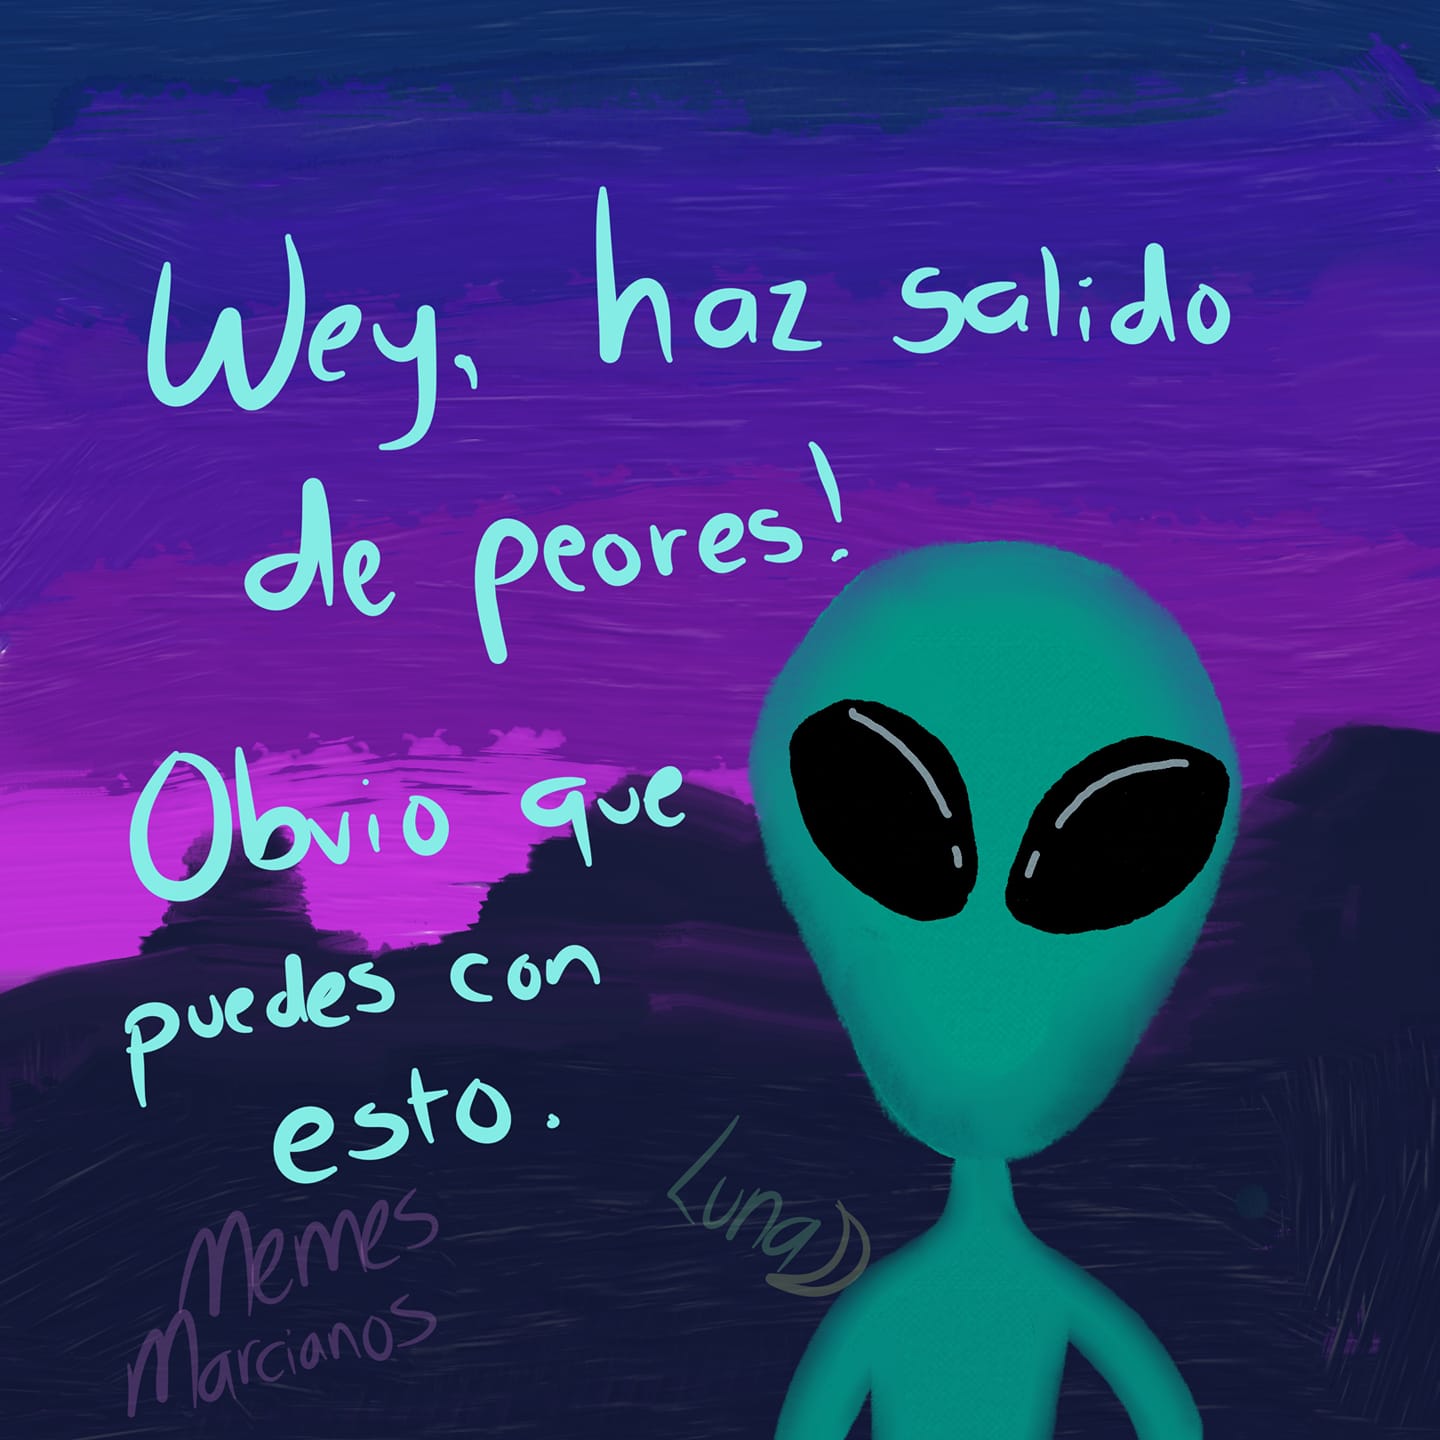 Wey, haz salido
de peores!
Obvio que
puedes con
esto.
Luna
Memes
Marcianos